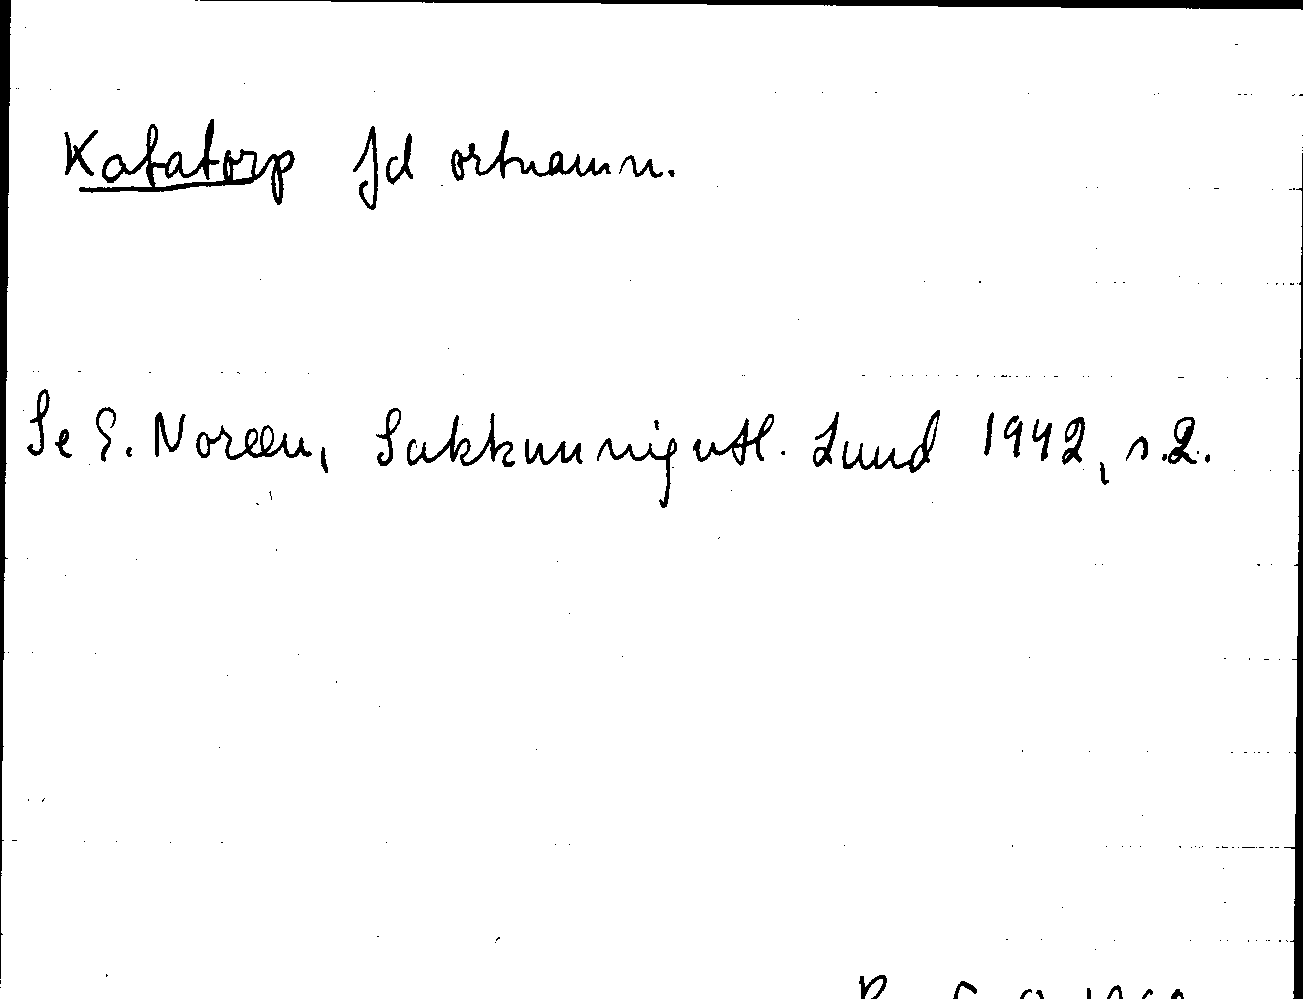 Katatorp fd ortnamn.
Se E. Noreen, Sakkunnigutl. Lund 1942, s.2.